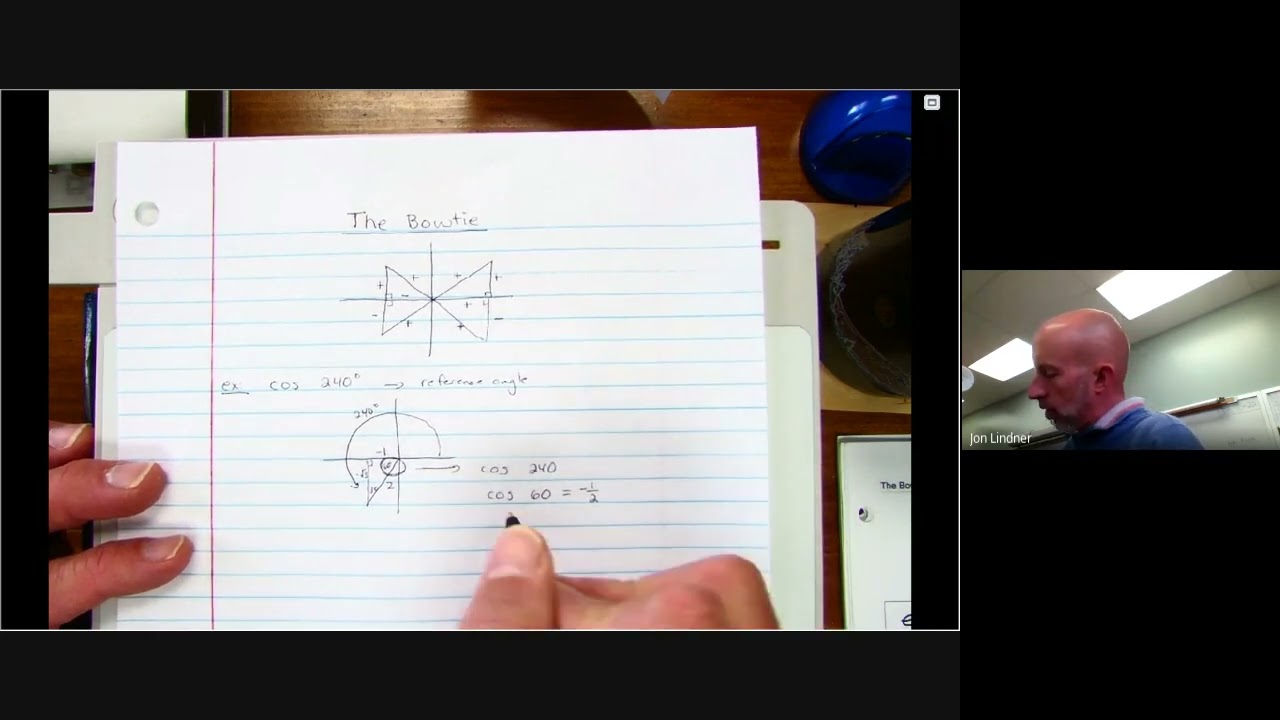 The Bowtie
+ + + +
- + -
- + + -
ex. cos 240° → reference angle
240°
-1
60
-√3
2
→ cos 240
cos 60 = -1/2
The Bo
Jon Lindner